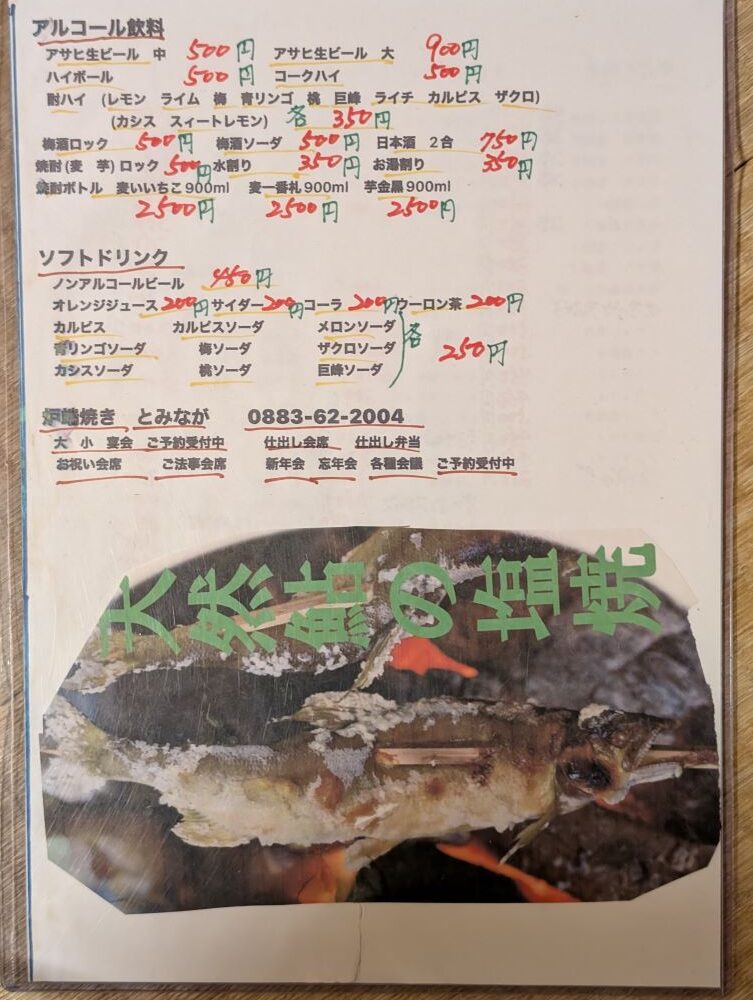 アルコール飲料
アサヒ生ビール 中 500円 アサヒ生ビール 大 900円
ハイボール 500円 コークハイ 500円
酎ハイ (レモン ライム 梅 青リンゴ 桃 巨峰 ライチ カルピス ザクロ)
(カシス スィートレモン) 各 350円
梅酒ロック 500円 梅酒ソーダ 500円 日本酒 2合 750円
焼酎(麦 芋)ロック 500円 水割り 350円 お湯割り 350円
焼酎ボトル 麦いいちこ900ml 麦一番札900ml 芋金黒900ml
2500円 2500円 2500円
ソフトドリンク
ノンアルコールビール 450円
オレンジジュース 200円 サイダー 200円 コーラ 200円 ウーロン茶 200円
カルピス カルピスソーダ メロンソーダ
青リンゴソーダ 梅ソーダ ザクロソーダ 各 250円
カシスソーダ 桃ソーダ 巨峰ソーダ
炉端焼き とみなが 0883-62-2004
大 小 宴会 ご予約受付中 仕出し会席 仕出し弁当
お祝い会席 ご法事会席 新年会 忘年会 各種会議 ご予約受付中
天然鮎の塩焼